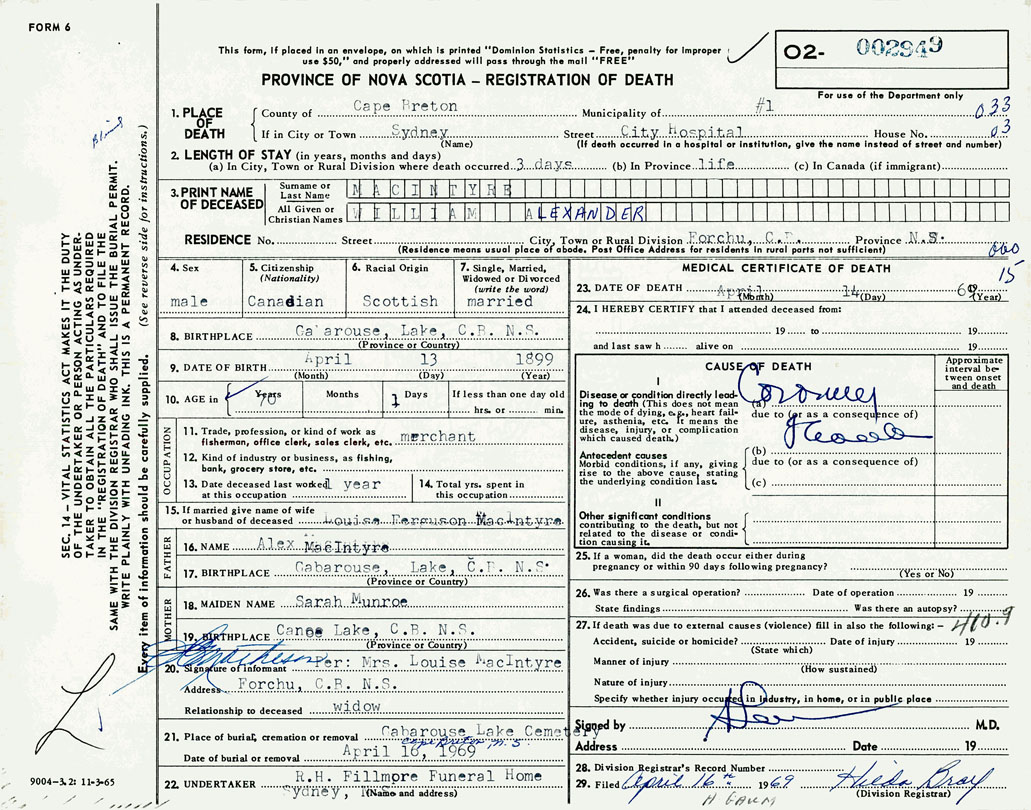 FORM 6
This form, if placed in an envelope, on which is printed "Dominion Statistics – Free, penalty for improper
use $50," and properly addressed will pass through the mail "FREE"
PROVINCE OF NOVA SCOTIA – REGISTRATION OF DEATH
O2- 002949
For use of the Department only
SEC. 14 – VITAL STATISTICS ACT MAKES IT THE DUTY
OF THE UNDERTAKER OR PERSON ACTING AS UNDER-
TAKER TO OBTAIN ALL THE PARTICULARS REQUIRED
IN THE "REGISTRATION OF DEATH" AND TO FILE THE
SAME WITH THE DIVISION REGISTRAR WHO SHALL ISSUE THE BURIAL PERMIT.
WRITE PLAINLY WITH UNFADING INK. THIS IS A PERMANENT RECORD.
Every item of information should be carefully supplied. (See reverse side for instructions.)
1. PLACE OF DEATH
County of Cape Breton Municipality of #1 033
If in City or Town Sydney Street City Hospital House No. 03
(Name) (If death occurred in a hospital or institution, give the name instead of street and number)
2. LENGTH OF STAY (in years, months and days)
(a) In City, Town or Rural Division where death occurred 3 days (b) In Province life (c) In Canada (if immigrant)
3. PRINT NAME OF DECEASED
Surname or Last Name MACINTYRE
All Given or Christian Names WILLIAM ALEXANDER
RESIDENCE No. Street City, Town or Rural Division Forchu, C.B. Province N.S.
(Residence means usual place of abode. Post Office Address for residents in rural parts not sufficient)
15
4. Sex
male
5. Citizenship (Nationality)
Canadian
6. Racial Origin
Scottish
7. Single, Married, Widowed or Divorced (write the word)
married
8. BIRTHPLACE Gabarouse, Lake, C.B. N.S.
(Province or Country)
9. DATE OF BIRTH April 13 1899
(Month) (Day) (Year)
10. AGE in Years 70 Months Days 1 If less than one day old
hrs. or min.
OCCUPATION
11. Trade, profession, or kind of work as
fisherman, office clerk, sales clerk, etc. merchant
12. Kind of industry or business, as fishing,
bank, grocery store, etc.
13. Date deceased last worked
at this occupation 1 year
14. Total yrs. spent in
this occupation
15. If married give name of wife
or husband of deceased Louise Ferguson MacIntyre
FATHER
16. NAME Alex MacIntyre
17. BIRTHPLACE Gabarouse, Lake, C.B. N.S.
(Province or Country)
MOTHER
18. MAIDEN NAME Sarah Munroe
19. BIRTHPLACE Canoe Lake, C.B. N.S.
(Province or Country)
20. Signature of informant Per: Mrs. Louise MacIntyre
Address Forchu, C.B. N.S.
Relationship to deceased widow
21. Place of burial, cremation or removal Gabarouse Lake Cemetery
Cape Breton N.S.
Date of burial or removal April 16, 1969
22. UNDERTAKER R.H. Fillmore Funeral Home
Sydney, N.S.
(Name and address)
9004-3.2: 11-3-65
MEDICAL CERTIFICATE OF DEATH
23. DATE OF DEATH April 14 69
(Month) (Day) (Year)
24. I HEREBY CERTIFY that I attended deceased from:
19 to 19
and last saw h alive on 19
CAUSE OF DEATH
Approximate interval between onset and death
I
Disease or condition directly lead-
ing to death (This does not mean
the mode of dying, e.g., heart fail-
ure, asthenia, etc. It means the
disease, injury, or complication
which caused death.)
(a) Coronary
due to (or as a consequence of)
Antecedent causes
Morbid conditions, if any, giving
rise to the above cause, stating
the underlying condition last.
(b)
due to (or as a consequence of)
(c)
II
Other significant conditions
contributing to the death, but not
related to the disease or condi-
tion causing it.
25. If a woman, did the death occur either during
pregnancy or within 90 days following pregnancy?
(Yes or No)
26. Was there a surgical operation? Date of operation 19
State findings Was there an autopsy?
27. If death was due to external causes (violence) fill in also the following: – 410.9
Accident, suicide or homicide? Date of injury 19
(State which)
Manner of injury
(How sustained)
Nature of injury
Specify whether injury occurred in Industry, in home, or in public place
Signed by M.D.
Address Date 19
28. Division Registrar's Record Number
29. Filed April 16th 1969 Hilda Bray
(Division Registrar)